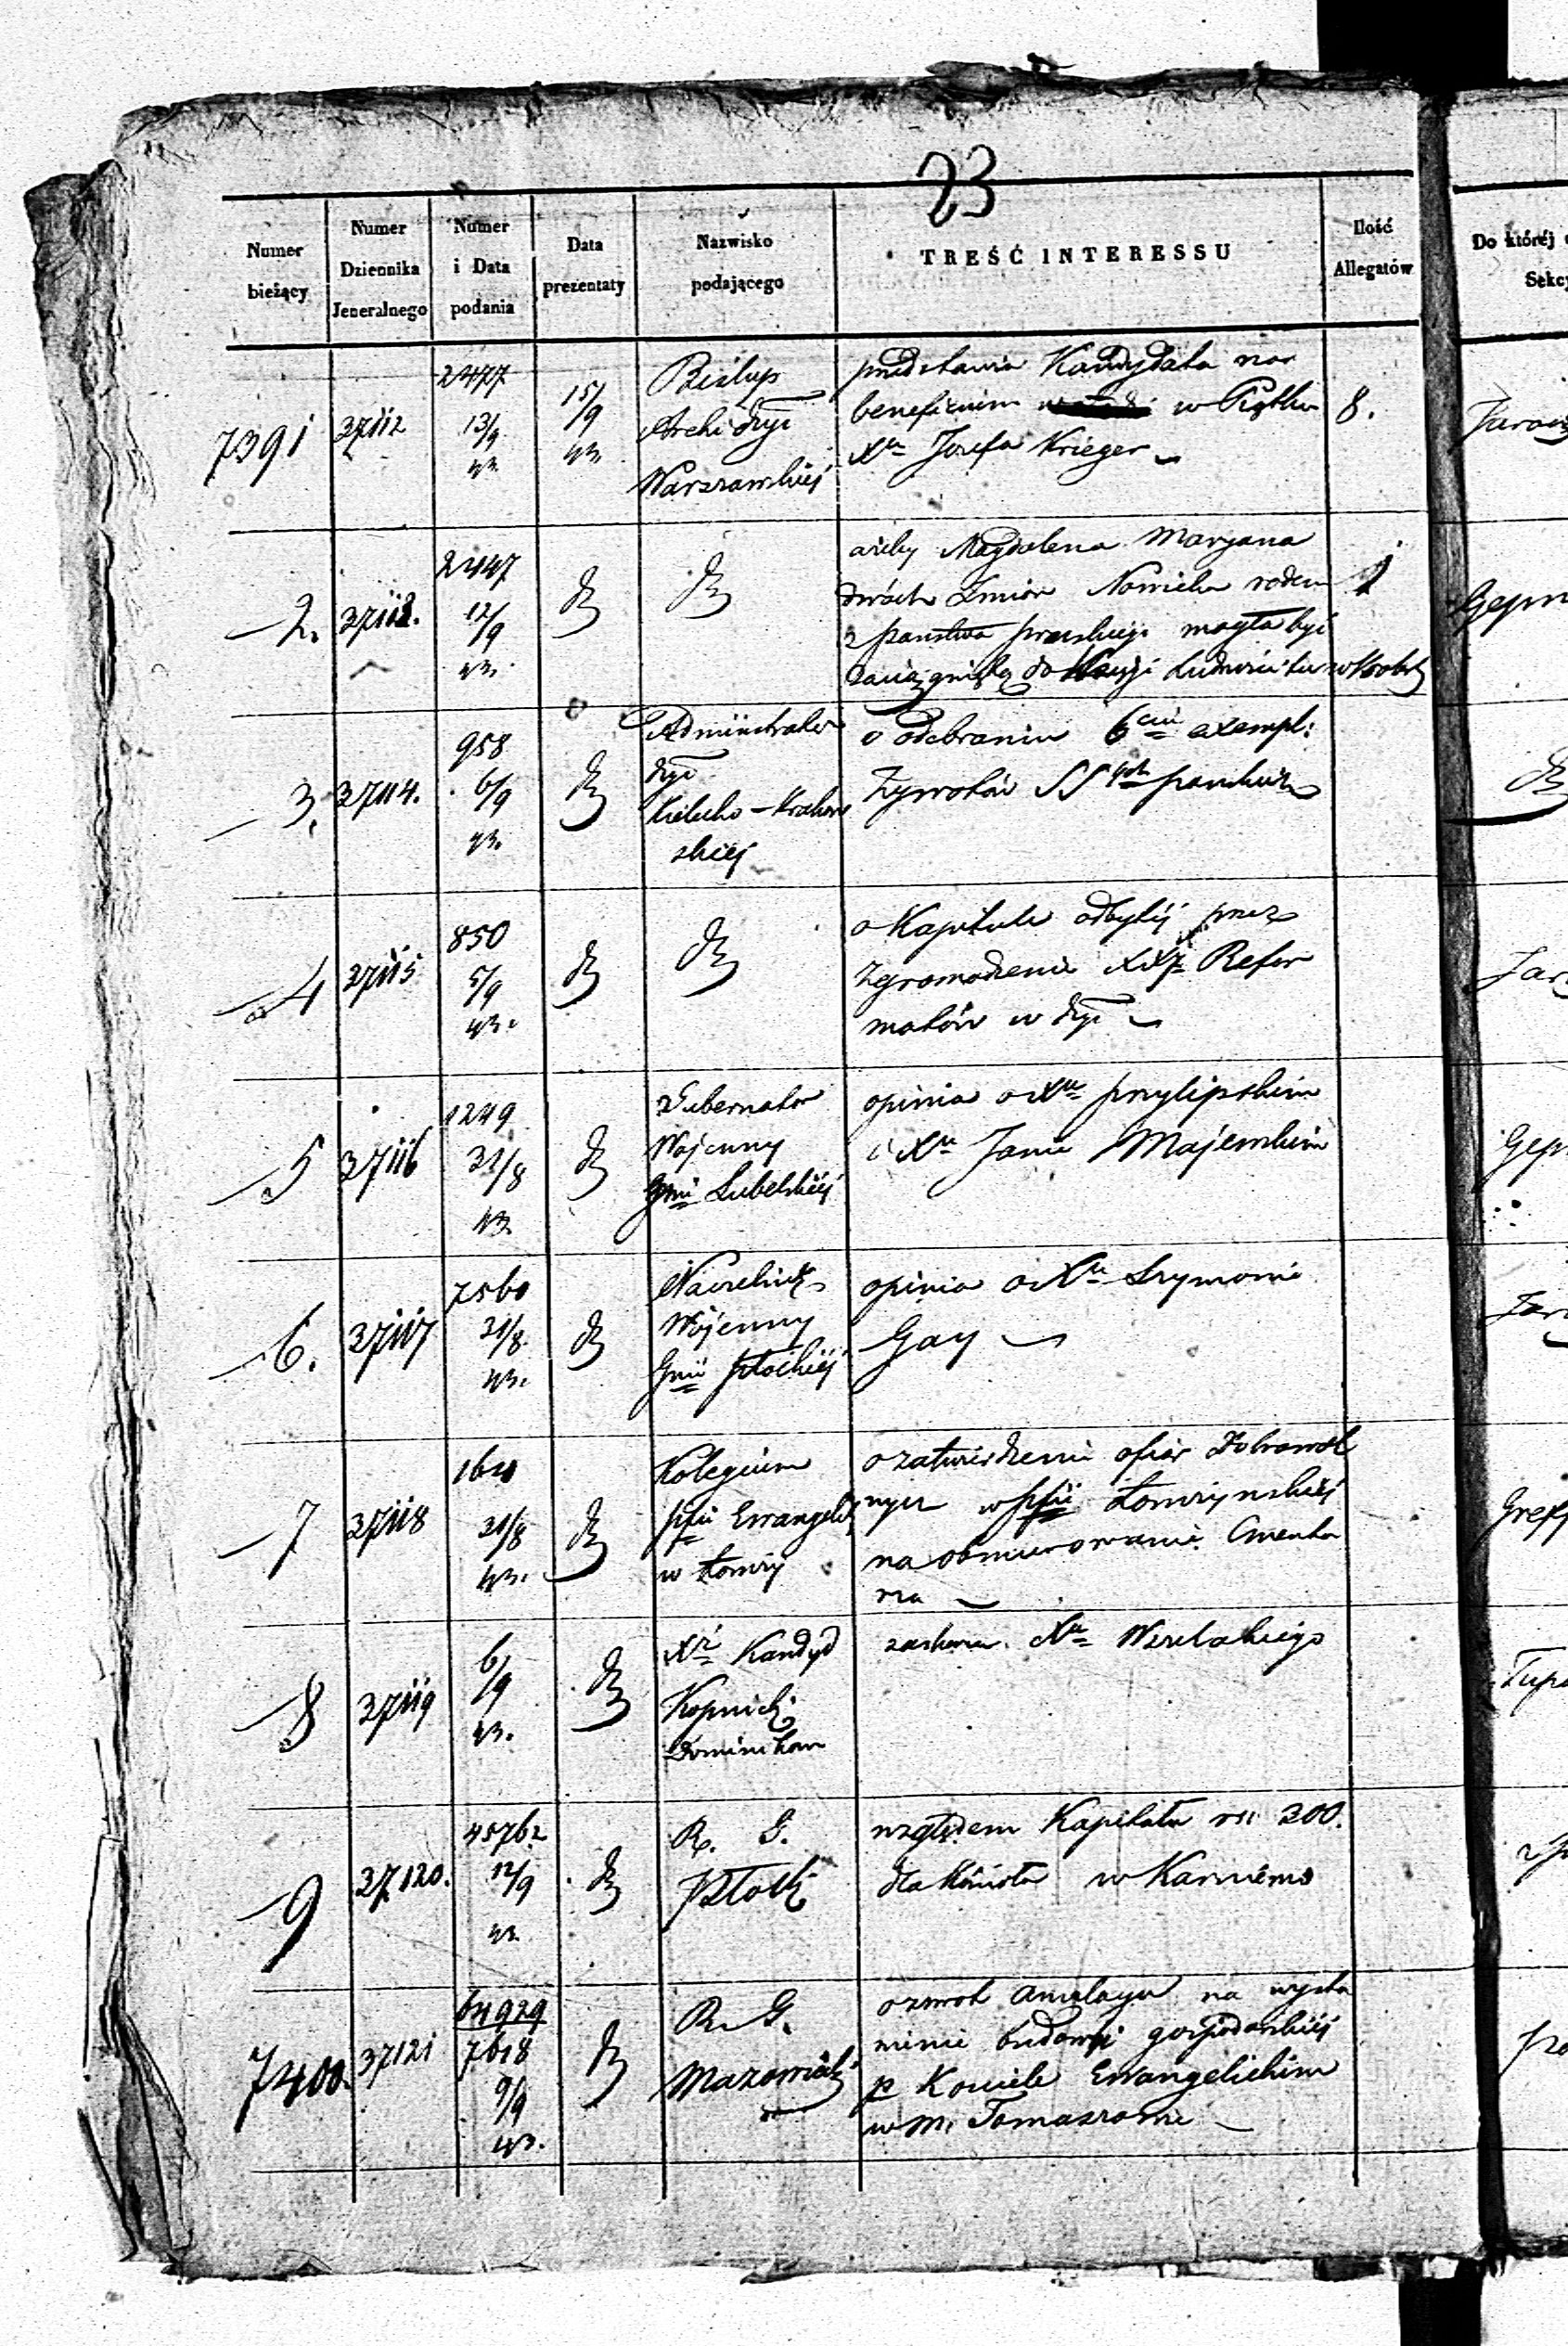 23
Numer bieżący
Numer Dziennika Jeneralnego
Numer i Data podania
Data prezentaty
Nazwisko podającego
TREŚĆ INTERESSU
Ilość Allegatów
Do której
Sekcy
7391 37112 2477 13/9 43. 15/9 43. Biskup Archi dyi Warszawskiej
przedstawia Kandydata na
beneficium w Piątku
Xa Jozefa Krieger 8.
2. 37113. 2447 12/9 43. d d
ażeby Magdalena Maryana
dwóch Imion rodem
z państwa pruskiego mogła być
do
3. 37114. 958 6/9 43. d Administrator dyi Kielecko-Krakowskiej
o odebraniu 6ciu exempl:
Zywotów SS pańskich
4 37115 850 5/9 43. d d
o Kapitule odbytéj przez
Zgromadzenie XX Refor
matów w dyi
5 37116 1249 31/8 43. d Gubernator Wojenny Gnii Lubelskiéj
opinia o Xu Przylipskim
i Xu Janie Majewskim
6. 37117 7560 31/8 43. d Naczelnik Wojenny Gnii Płockiéj
opinia o Xu Szymonie
Gay
7 37118 31/8 43. d Kolegium pfii Ewangelic w Łomży
o zatwierdzenie ofiar Dobrowol
nych w pfii Łomżynskiéj
na obmurowanie Cmenta
rza
8 37119 6/9 43. d Xdz Kandyd Dominikan
Xa
9 37120. 45762 12/9 43. d R. G. Płocki
względem Kapitału rs: 300.
dla kościoła w Karniewo
7400. 37121 64929 7618 9/9 43. d R. G. Mazowiecki
o zwrot na wysta
wienie budowli gospodarskiéj
p Kościele Ewangelickim
w m. Tomaszowie